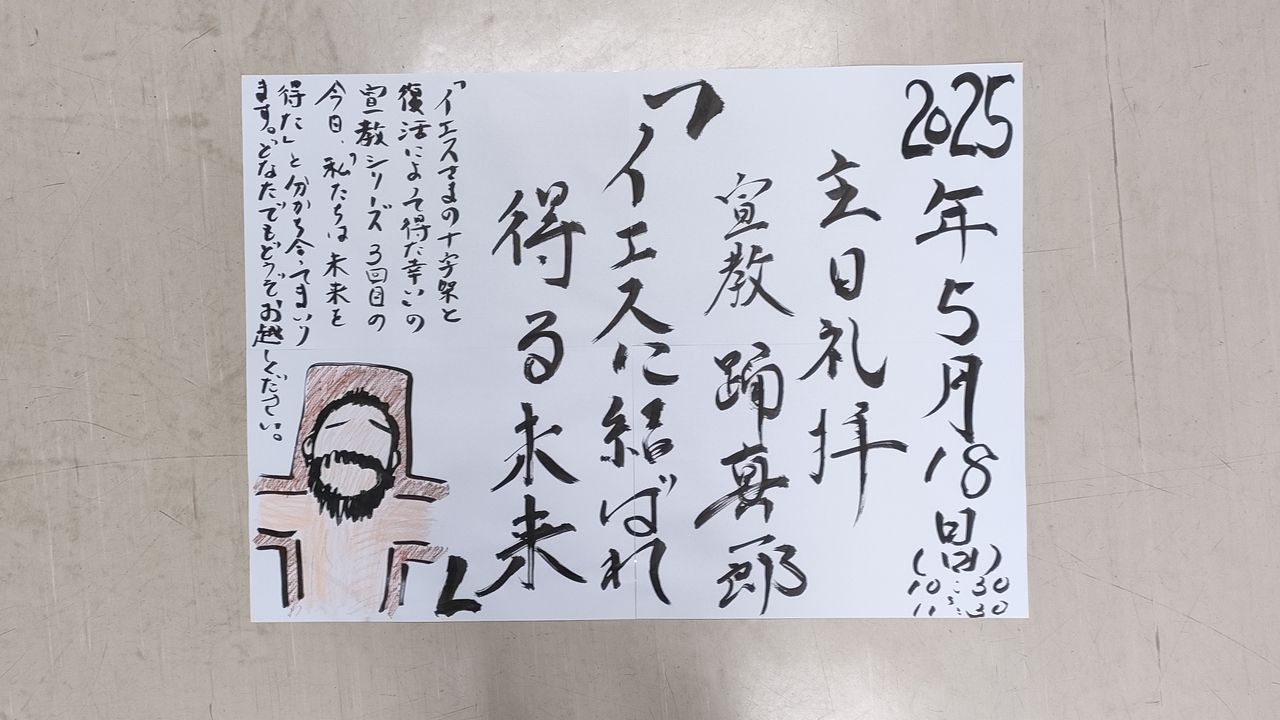 2025年5月18日(日)
10:30
11:30
主日礼拝
宣教 踊真一郎
「イエスに結ばれ
得る未来」
「イエスさまの十字架と
復活によって得た幸い」の
宣教シリーズ 3回目の
今日、「私たちは未来を
得た」と分かち合ってまいり
ます。どなたでもどうぞお越しください。